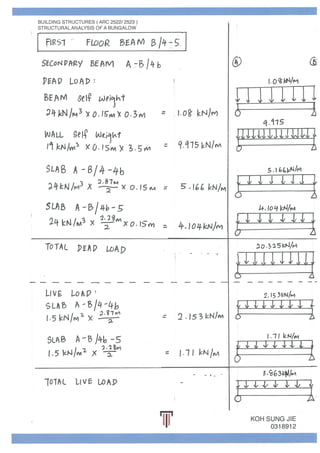 BUILDING STRUCTURES ( ARC 2522/ 2523 )
STRUCTURAL ANALYSIS OF A BUNGALOW
FIRST FLOOR BEAM B/4-5
SECONDARY BEAM A-B/4b
A B
DEAD LOAD :
1.08 kN/m
BEAM Self Weight
24 kN/m³ x 0.15m x 0.3m = 1.08 kN/m
9.975
WALL Self Weight
19 kN/m³ x 0.15m x 3.5m = 9.975 kN/m
SLAB A-B/4-4b
5.166 kN/m
24 kN/m³ x 2.87m/2 x 0.15m = 5.166 kN/m
SLAB A-B/4b-5
4.104 kN/m
24 kN/m³ x 2.28m/2 x 0.15m = 4.104 kN/m
TOTAL DEAD LOAD
20.325 kN/m
LIVE LOAD :
2.153 kN/m
SLAB A-B/4-4b
1.5 kN/m² x 2.87m/2 = 2.153 kN/m
1.71 kN/m
SLAB A-B/4b-5
1.5 kN/m² x 2.28m/2 = 1.71 kN/m
3.863 kN/m
TOTAL LIVE LOAD
KOH SUNG JIE
0318912